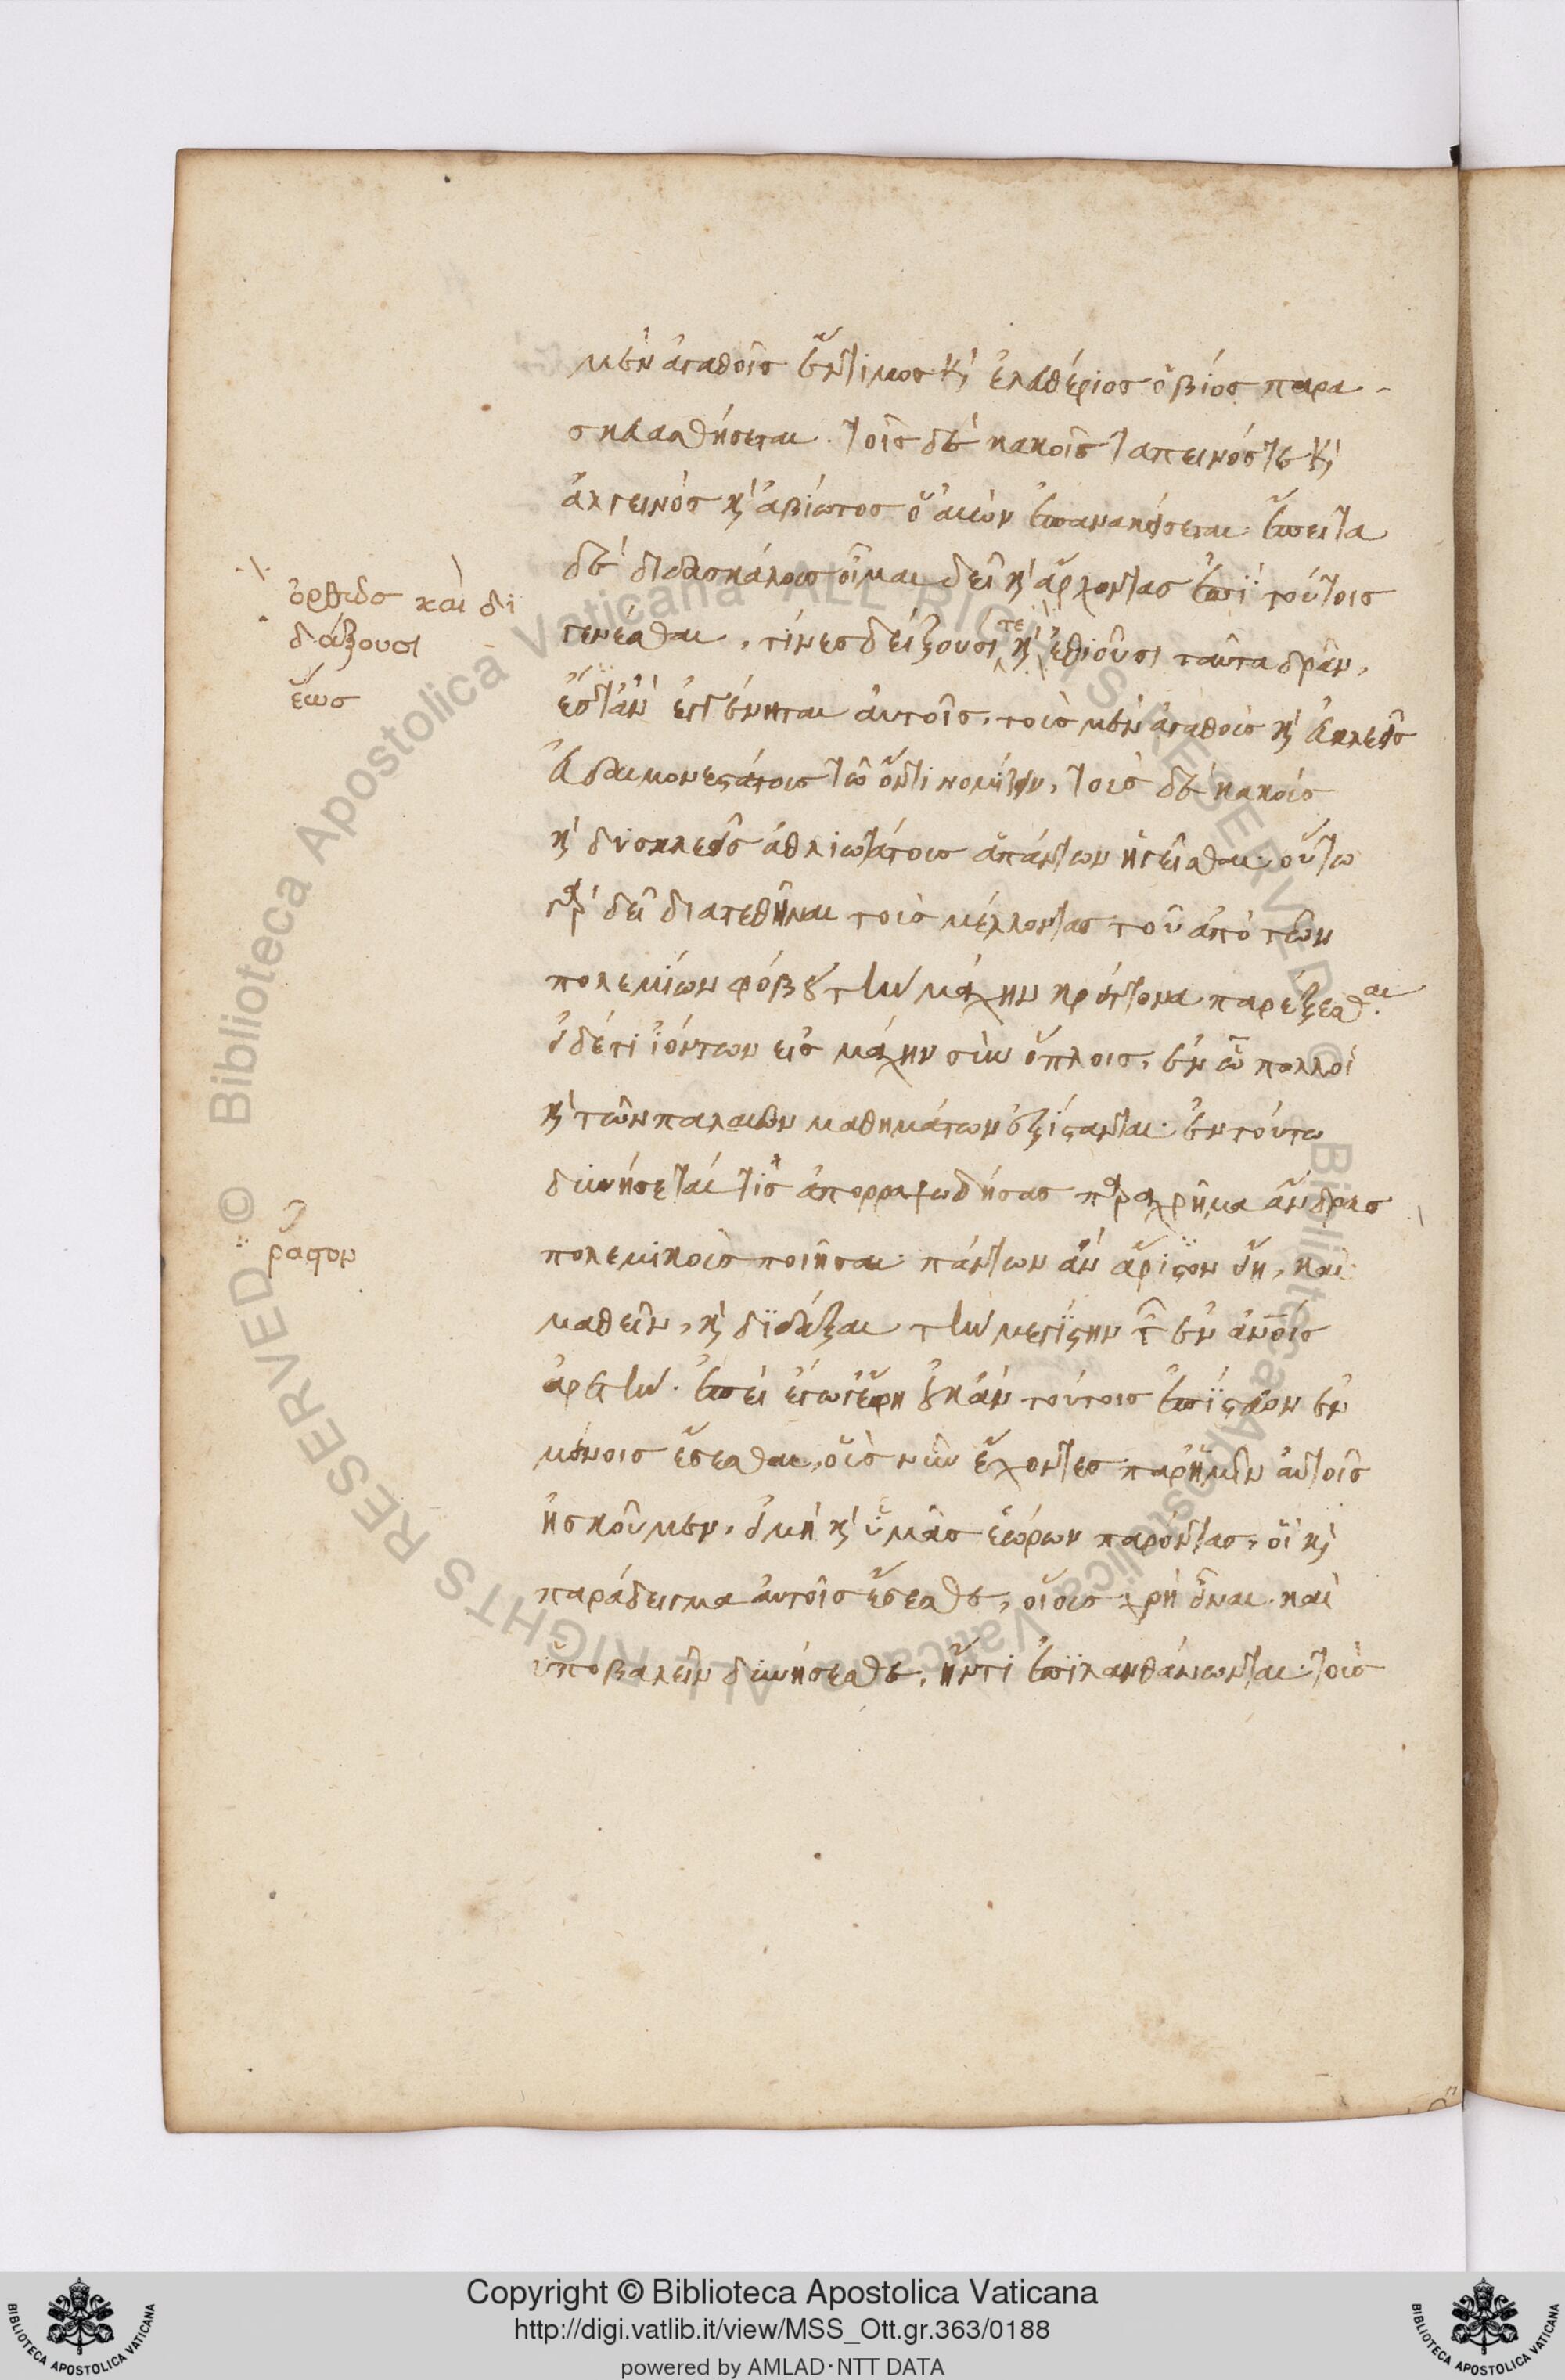 μὲν ἀγαθοῖς ἔντιμος καὶ ἐλευθέριος ὁ βίος παρα-
σκευασθήσεται. τοῖς δὲ κακοῖς ταπεινός τε καὶ
ἀλγεινὸς καὶ ἀβίωτος ὁ αἰὼν ἐπανακείσεται. ἔπειτα
δὲ διδασκάλους οἶμαι δεῖ καὶ ἄρχοντας ἐπὶ τούτοις
ὀρθῶς καὶ δι
δάξουσι
γενέσθαι, τίνες δείξουσί τε καὶ ἐθιοῦσι ταῦτα δρᾶν,
ἕως
ἔστ' ἂν ἐγγένηται αὐτοῖς, τοὺς μὲν ἀγαθοὺς καὶ εὐκλεεῖς
εὐδαιμονεστάτους τῷ ὄντι νομίζειν, τοὺς δὲ κακοὺς
καὶ δυσκλεεῖς ἀθλιωτάτους ἁπάντων ἡγεῖσθαι. οὕτω
γὰρ δεῖ διατεθῆναι τοὺς μέλλοντας τοῦ ἀπὸ τῶν
πολεμίων φόβου τὴν μάχην κρείττονα παρέξεσθαι.
εἰ δέ τι ἰόντων εἰς μάχην σὺν ὅπλοις, ἐν ᾧ πολλοὶ
καὶ τῶν παλαιῶν μαθημάτων ἐξίστανται. ἐν τούτῳ
δυνήσεταί τις ἀπορραψωδήσας παραχρῆμα ἄνδρας
ῥᾷστον
πολεμικοὺς ποιῆσαι. πάντων ἂν ἄριστον εἴη, καὶ
μαθεῖν, καὶ διδάξαι τὴν μεγίστην τῶν ἐν ἀνοις
ἀρετήν. ἐπεὶ ἔγωγ' ἔφη οὐκ ἂν τούτοις ἐπίστευον ἐν
μόνοις ἔσεσθαι, οὓς νῦν ἔχοντες παρ' ἡμῖν αὐτοῖς
ἠσκοῦμεν, εἰ μὴ καὶ ὑμᾶς ἑώρων παρόντας, οἳ καὶ
παράδειγμα αὐτοῖς ἔσεσθε, οἵους χρὴ εἶναι. καὶ
ὑποβαλεῖν δυνήσεσθε, ἤν τι ἐπιλανθάνωνται. τοὺς
Copyright © Biblioteca Apostolica Vaticana
http://digi.vatlib.it/view/MSS_Ott.gr.363/0188
powered by AMLAD·NTT DATA